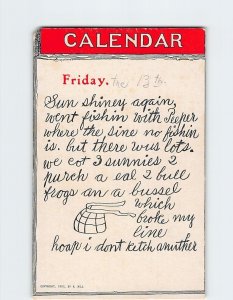 CALENDAR
Friday. the 13th.
Sun shiney again,
went fishin with Skeeper
where the sine no fishin
is. but there wus lots.
we cot 3 sunnies 2
purch a eal 2 bull
frogs an a bussel
which
broke my
line
hoap i dont ketch anuther